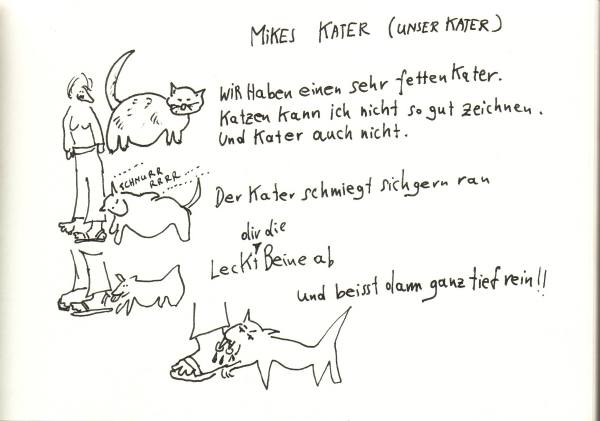 MIKES KATER (UNSER KATER)
WIR HABEN einen sehr fetten Kater.
Katzen kann ich nicht so gut zeichnen.
Und Kater auch nicht.
SCHNURR
RRRR
Der Kater schmiegt sich gern ran
dir die
Leckt Beine ab
und beisst dann ganz tief rein!!